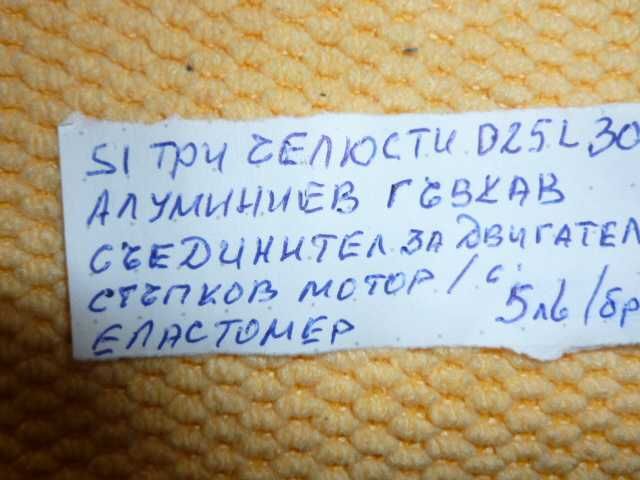 SI ТРИ ЧЕЛЮСТИ D25L30
АЛУМИНИЕВ ГЪВКАВ
СЪЕДИНИТЕЛ ЗА ДВИГАТЕЛ
СТЪПКОВ МОТОР / С
ЕЛАСТОМЕР 5лв/бр